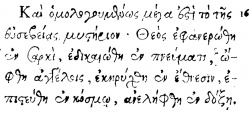 Καὶ ὁμολογουμθύως μέγα ἐστὶ τὸ τῆς 16
εὐσεβείας μυστήριον· Θεὸς ἐφανερώθη
ἐν σαρκὶ, ἐδικαιώθη ἐν πνεύματι, ὤ-
φθη ἀγγέλοις, ἐκηρύχθη ἐν ἔθνεσιν, ἐ-
πιστεύθη ἐν κόσμῳ, ἀνελήφθη ἐν δόξῃ.